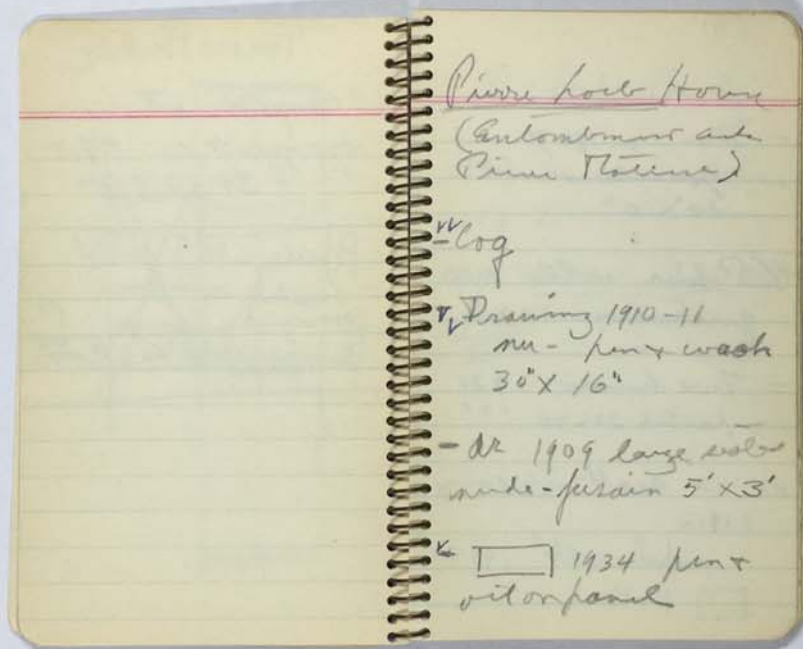 Pierre Loeb House
(
Pierre Matisse)
Cog
Drawing 1910-11
nu - pen & wash
30" X 16"
- dr 1909 large
nude - fusain 5' X 3'
1934 pen &
oil on panel